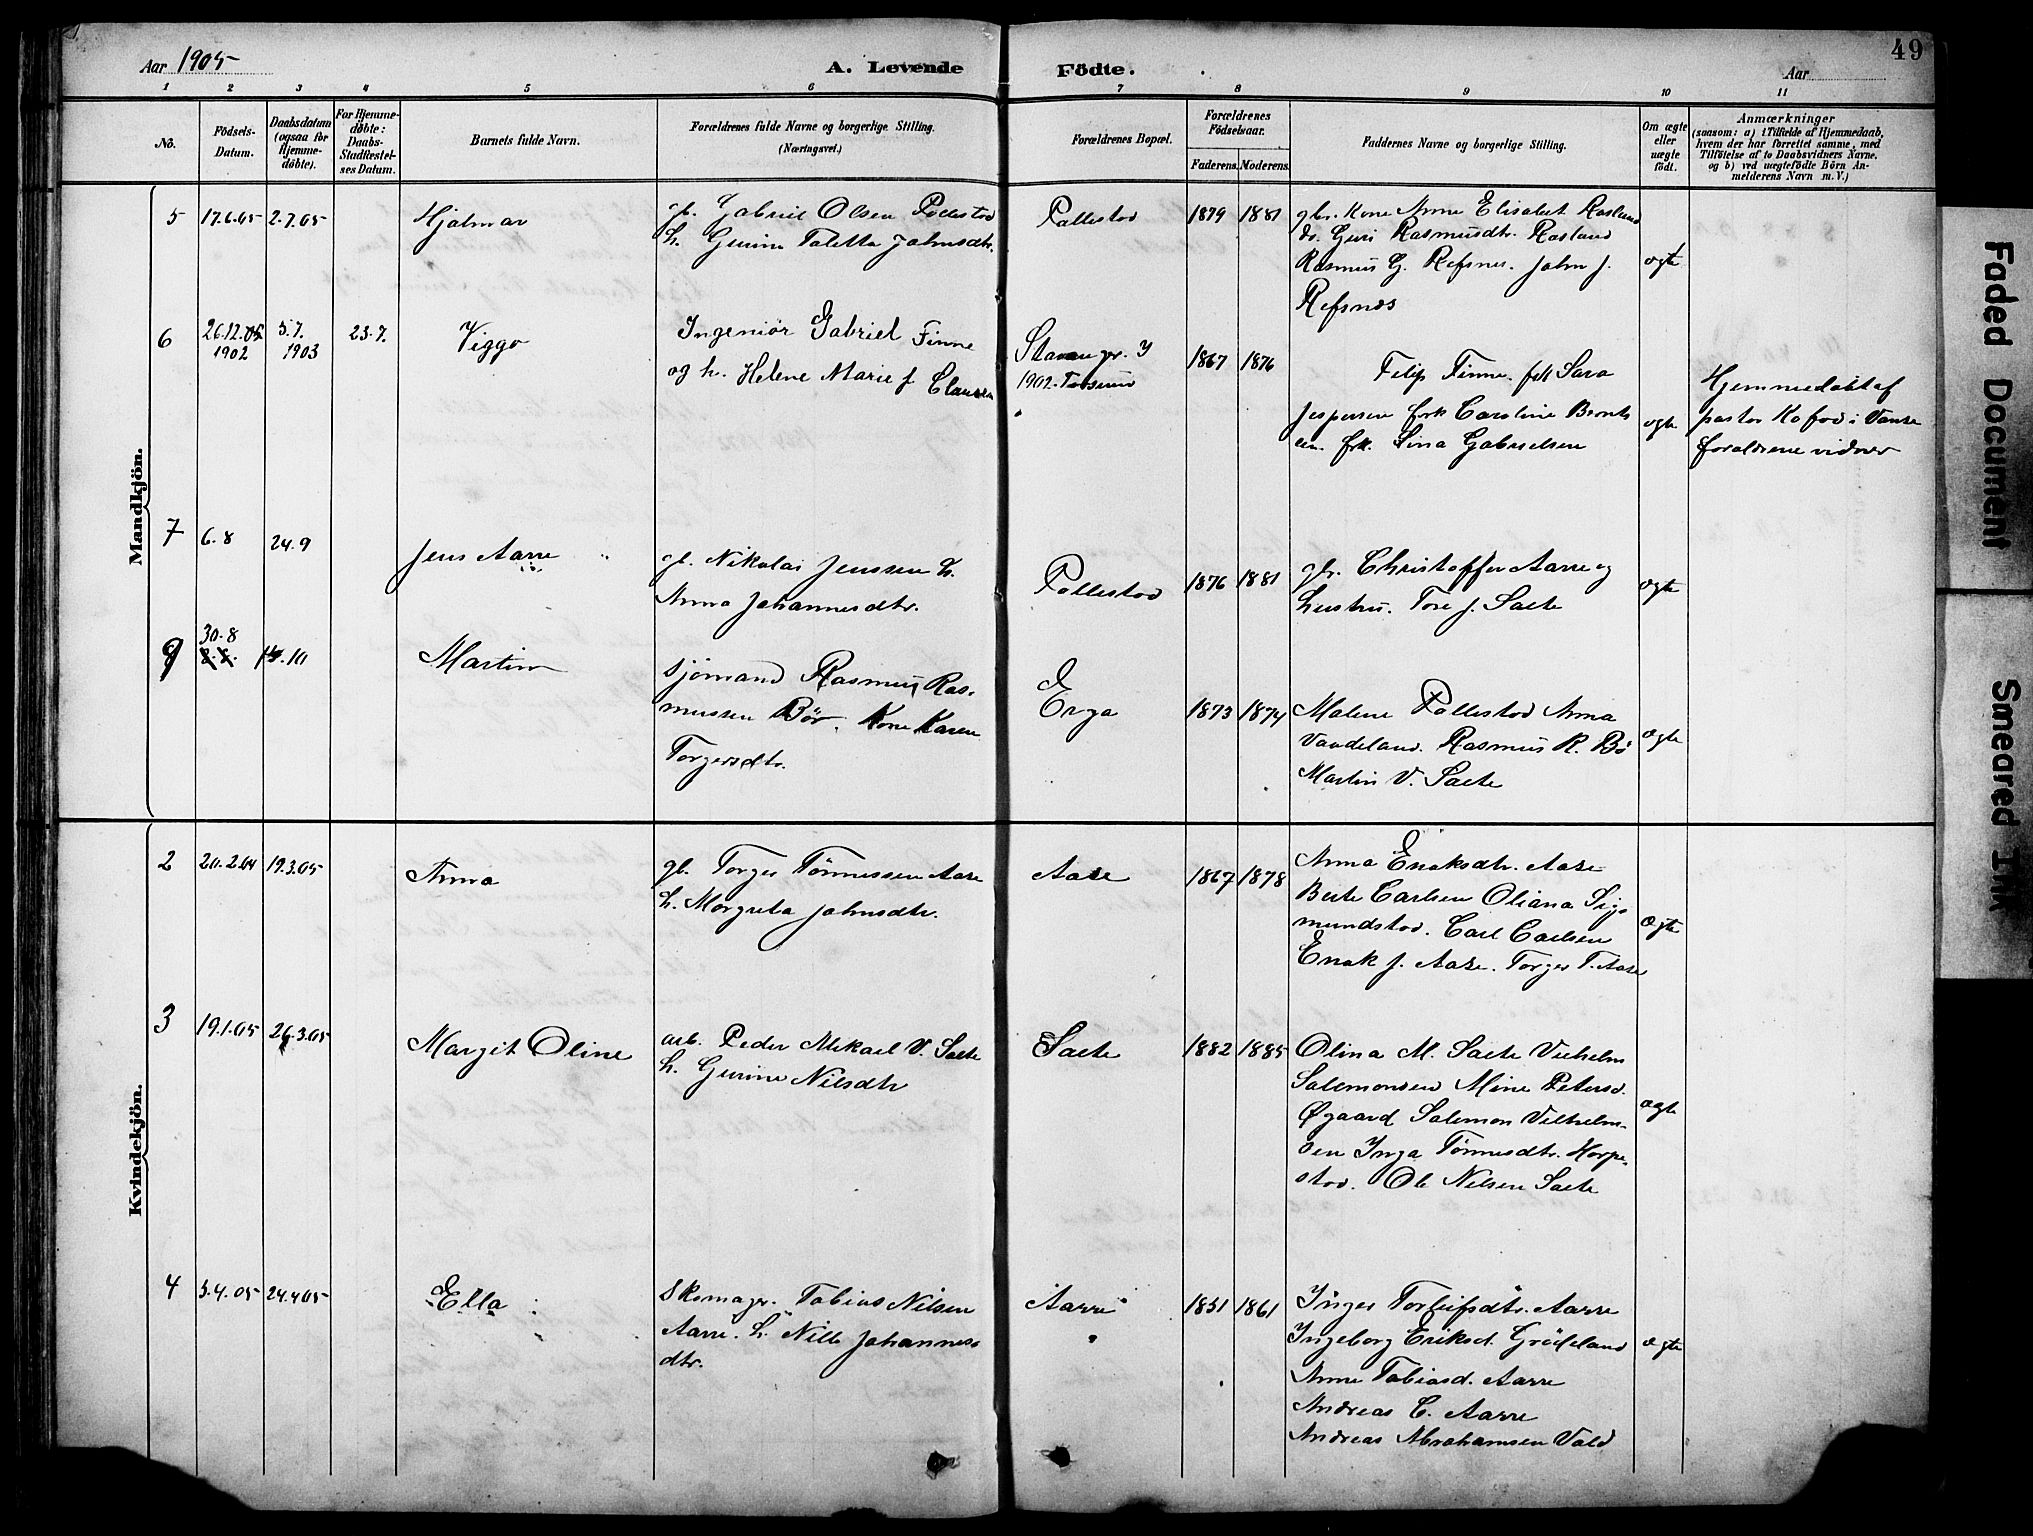 49
Aar 1905
A. Levende Födte.
Aar
1 2 3 4 5 6 7 8 9 10 11
No.
Födsels-Datum.
Daabsdatum (ogsaa for Hjemmedöbte).
For Hjemmedöbte: Daabs-Stadfæstelses Datum.
Barnets fulde Navn.
Forældrenes fulde Navne og borgerlige Stilling.
(Næringsvei.)
Forældrenes Bopæl.
Forældrenes Födselsaar.
Faderens. Moderens.
Faddernes Navne og borgerlige Stilling.
Om ægte eller uægte födt.
Anmærkninger
(saasom: a) i Tilfælde af Hjemmedaab,
hvem der har forrettet samme, med
Tilföielse af to Daabsvidners Navne,
og b) ved uægtefödte Börn Anmelderens Navn m. V.)
Mandkjön.
5 17.6.05 2.7.05
Hjalmar
gb. Gabriel Olsen Pollestad
h. Gurine Taletta Johnsdtr.
Pollestad
1879 1881
gbr. Kone Anne Elisabet Rosland
do. Guri Rasmusdtr. Rosland
Rasmus G. Refsnes. John J.
Refsnæs
ægte
6 26.12.05 5.7. 23.7.
1902 1903
Viggo
Ingeniör Gabriel Finne
og h. Helene Marie f Clausen
Stavanger. I
1902. Farsund
1867 1876
Filip Finne. frk Sara
Jespersen frk Caroline Bernts
en. frk. Sina Gabrielsen
ægte
Hjemmedöbt af
pastor Kofod i Vanse
forældrene vidner
7 6.8 24.9
Jens Aarre
gb. Nikolai Jenssen h.
Anna Johannesdtr.
Pollestad
1876 1881
gbr. Christoffer Aarre og
hustru. Tore J. Saele
ægte
30.8
15.10
Martin
sjömand Rasmus Ras-
mussen Bör. Kone Karen
Torgersdtr.
Erga
1873 1874
Malene Pollestad Anna
Vaadeland. Rasmus R. Bö
Martin V. Saele
ægte
Kvindekjön.
2 20.2.04 19.3.05
Anna
gb. Torger Tönnessen Aase
h. Margreta Johnsdtr.
Aase
1867 1878
Anna Enoksdtr. Aase
Berte Carlsen Oliana Sig-
mundstad. Carl Carlsen
Enok J. Aase. Torger T. Aase
ægte
3 19.1.05 26.3.05
Margit Oline
arb. Peder Mikael V. Saele
h. Gurine Nilsdtr
Saele
1882 1885
Olina M. Saele Vilhelm
Salomonsen Mine Petersd.
Øgaard Salomon Vilhelm-
sen Inga Tönnesdtr. Horpe-
stad. Ole Nilsen Saele
ægte
4 3.4.05 24.4.05
Ella
Skomager. Tobias Nilsen
Aarre. h. Nille Johannes-
dtr.
Aarre
1851 1861
Inger Torleifsdtr. Aarre
Ingeborg Eriksd. Grödeland
Anne Tobiasd. Aarre
Andreas C. Aarre
Andreas Abrahamsen Vold
ægte
Faded Document
Smeared Ink